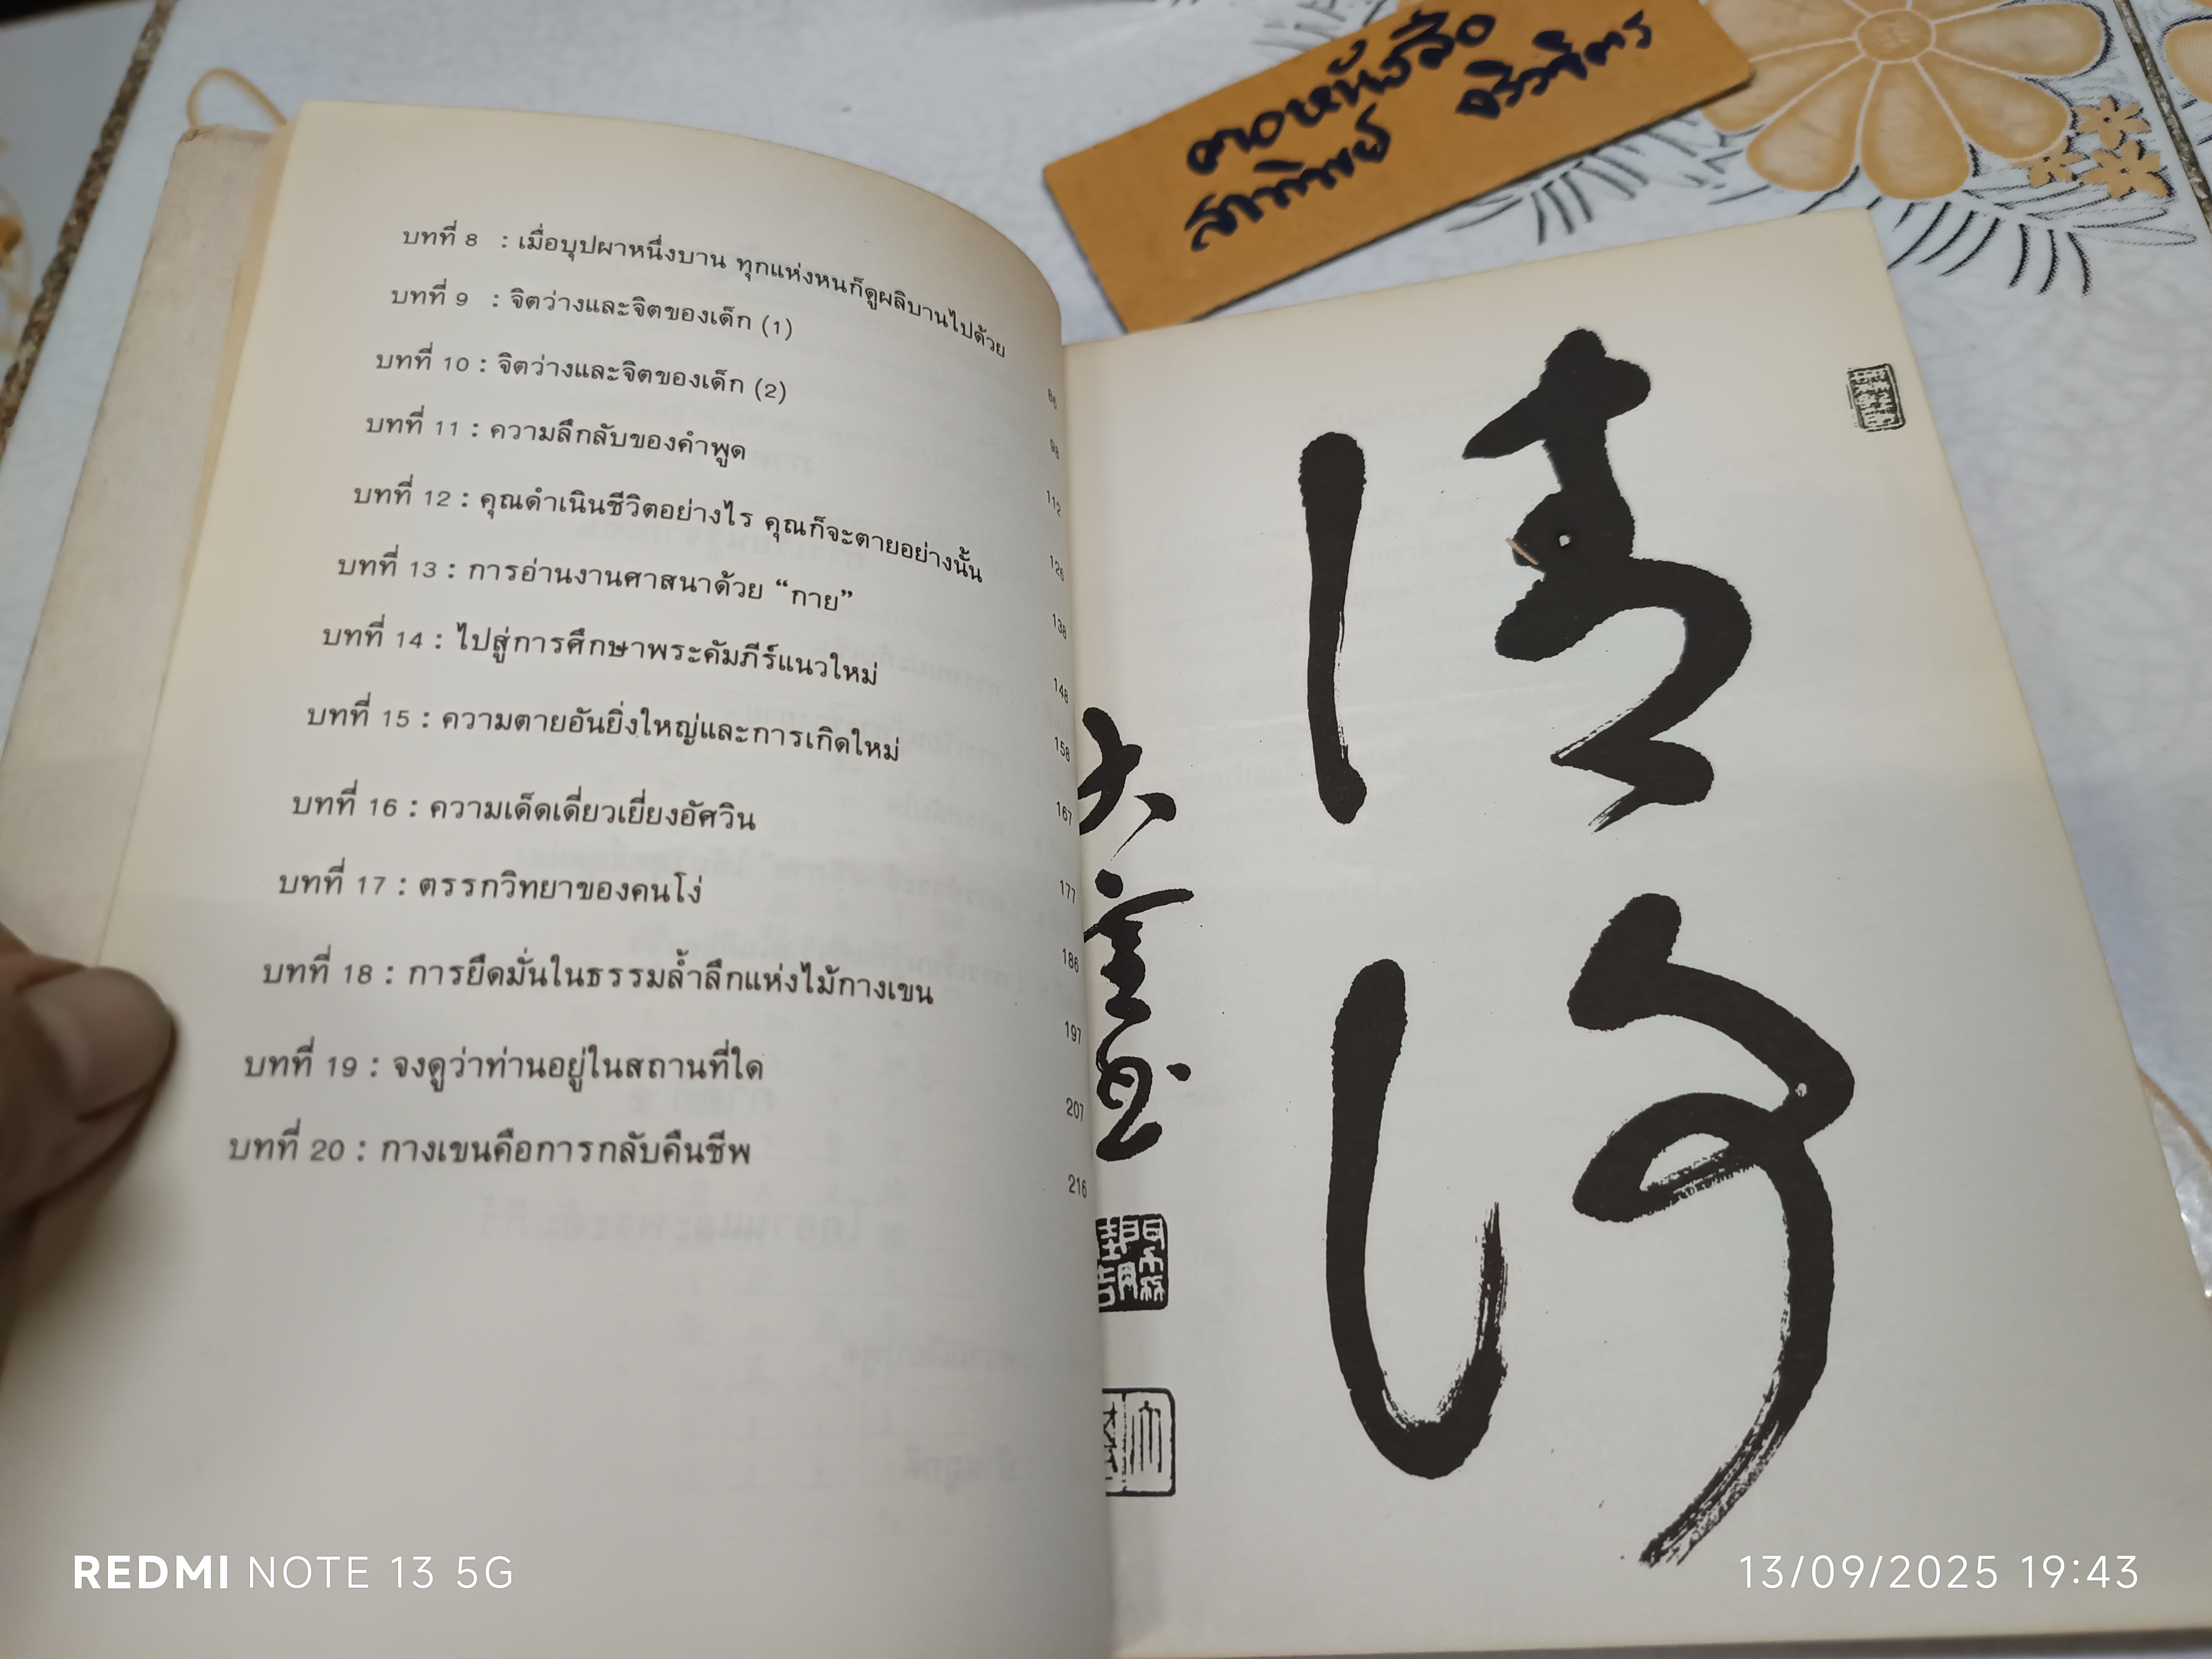 คอหนังสือ
บทที่ 8 : เมื่อบุปผาหนึ่งบาน ทุกแห่งหนก็ดูผลิบานไปด้วย 86
บทที่ 9 : จิตว่างและจิตของเด็ก (1) 98
บทที่ 10 : จิตว่างและจิตของเด็ก (2) 112
บทที่ 11 : ความลึกลับของคำพูด 126
บทที่ 12 : คุณดำเนินชีวิตอย่างไร คุณก็จะตายอย่างนั้น 138
บทที่ 13 : การอ่านงานศาสนาด้วย “กาย” 148
บทที่ 14 : ไปสู่การศึกษาพระคัมภีร์แนวใหม่ 158
บทที่ 15 : ความตายอันยิ่งใหญ่และการเกิดใหม่ 167
บทที่ 16 : ความเด็ดเดี่ยวเยี่ยงอัศวิน 177
บทที่ 17 : ตรรกวิทยาของคนโง่ 186
บทที่ 18 : การยึดมั่นในธรรมล้ำลึกแห่งไม้กางเขน 197
บทที่ 19 : จงดูว่าท่านอยู่ในสถานที่ใด 207
บทที่ 20 : กางเขนคือการกลับคืนชีพ 216
REDMI NOTE 13 5G
13/09/2025 19:43